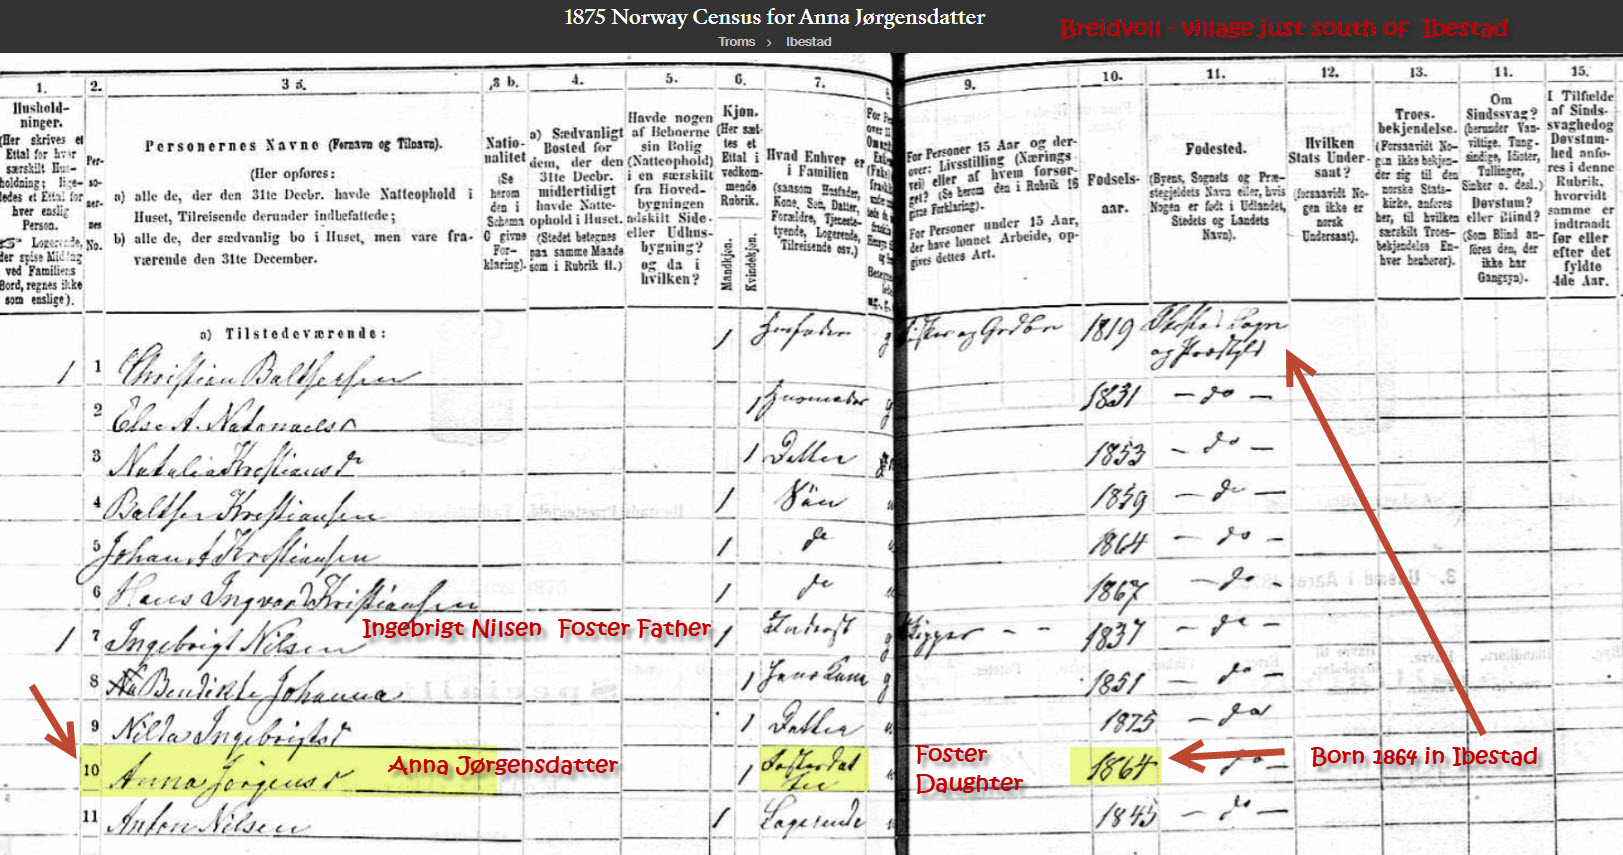 1875 Norway Census for Anna Jørgensdatter
Troms › Ibestad
Breidvoll - village just south of Ibestad
1.
Hushold-
ninger.
(Her skrives et
Ettal for hver
særskilt Hus-
holdning; lige-
ledes et Ettal for
hver enslig
Person.
Logerende,
der spise Middag
ved Familiens
Bord, regnes ikke
som enslige).
2.
Per-
so-
ner-
nes
No.
3 a.
Personernes Navne (Fornavn og Tilnavn).
(Her opføres:
a) alle de, der den 31te Decbr. havde Natteophold i
Huset, Tilreisende derunder indbefattede;
b) alle de, der sædvanlig bo i Huset, men vare fra-
værende den 31te December.
3 b.
Natio-
nalitet
(Se
herom
den i
Schema
C givne
For-
klaring).
4.
a) Sædvanligt
Bosted for
dem, der den
31te Decbr.
midlertidigt
havde Natte-
ophold i Huset.
(Stedet betegnes
paa samme Maade
som i Rubrik 11.)
5.
Havde nogen
af Beboerne
sin Bolig
(Natteophold)
i en særskilt
fra Hoved-
bygningen
adskilt Side-
eller Udhus-
bygning?
og da i
hvilken?
6.
Kjøn.
(Her sæt-
tes et
Ettal i
vedkom-
mende
Rubrik.
Mandkjøn.
Kvindekjøn.
7.
Hvad Enhver er
i Familien
(saasom Husfader,
Kone, Søn, Datter,
Forældre, Tjeneste-
tyende, Logerende,
Tilreisende osv.)
9.
For Personer 15 Aar og der-
over: Livsstilling (Nærings-
vei) eller af hvem forsør-
get? (Se herom den i Rubrik 16
givne Forklaring).
For Personer under 15 Aar,
der have lønnet Arbeide, op-
gives dettes Art.
10.
Fødsels-
aar.
11.
Fødested.
(Byens, Sognets og Præ-
stegjeldets Navn eller, hvis
Nogen er født i Udlandet,
Stedets og Landets
Navn).
12.
Hvilken
Stats Under-
saat?
(forsaavidt No-
gen ikke er
norsk
Undersaat).
13.
Troes-
bekjendelse.
(Forsaavidt No-
gen ikke bekjen-
der sig til den
norske Stats-
kirke, anføres
her, til hvilken
særskilt Troes-
bekjendelse En-
hver henhører).
11.
Om
Sindssvag?
(herunder Van-
vittige, Tung-
sindige, Idioter,
Tullinger,
Sinker o. desl.)
Døvstum?
eller Blind?
(Som Blind an-
føres den, der
ikke har
Gangsyn).
15.
I Tilfælde
af Sinds-
svaghed og
Døvstum-
hed anfø-
res i denne
Rubrik,
hvorvidt
samme er
indtraadt
før eller
efter det
fyldte
4de Aar.
a) Tilstedeværende:
1 1 Christian Balthersen 1 Husfader g Fisker og Grdbr 1819 Ibestad Sogn
og Præstgjld
2 Else A. Natanaelsd 1 Husmoder g 1831 — do —
3 Natalia Krestiansdr 1 Datter 1853 — do —
4 Balthser Krestiansen 1 Søn 1859 — do —
5 Johan A Krestiansen 1 do 1864 — do —
6 Hans Ingvard Kristiansen 1 do 1867 — do
1 7 Ingebrigt Nilsen Ingebrigt Nilsen Foster Father 1 Inderst g 1837 — do —
8 Bendikte Johanna 1 Hans Kone g 1851 — do —
9 Nilda Ingebrigtsd 1 Datter 1875 — do
10 Anna Jörgensd Anna Jørgensdatter 1 Fosterdat
ter Foster
Daughter 1864 do — Born 1864 in Ibestad
11 Anton Nilsen 1 Logerende 1845 — do —